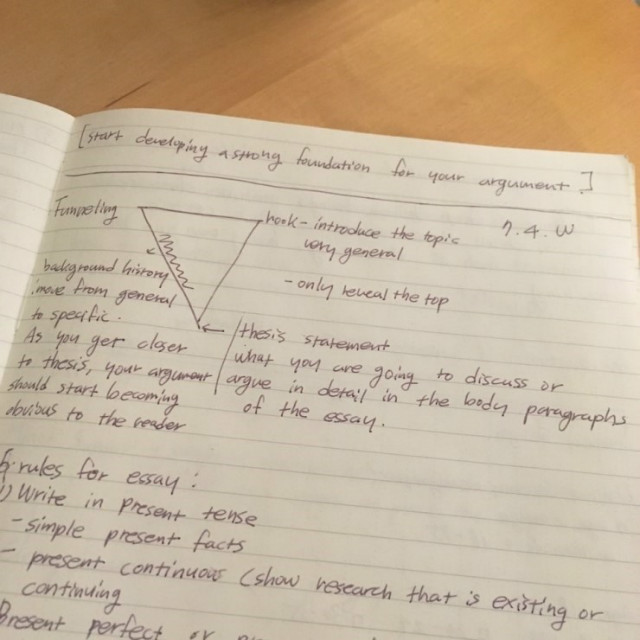 [start developing a strong foundation for your argument.]
Funneling
hook - introduce the topic
very general
7.4.W
- only reveal the top
background history
move from general
to specific.
As you get closer
to thesis, your argument
should start becoming
obvious to the reader
thesis statement
what you are going to discuss or
argue in detail in the body paragraphs
of the essay.
rules for essay :
1) Write in present tense
- simple present facts
- present continuous (show research that is existing or
continuing
Present perfect or